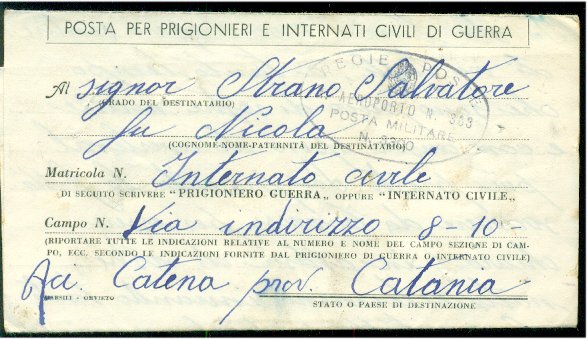 POSTA PER PRIGIONIERI E INTERNATI CIVILI DI GUERRA
REGIE POSTE
AEROPORTO N. 383
POSTA MILITARE
Al signor Strano Salvatore
(GRADO DEL DESTINATARIO)
fu Nicola
(COGNOME-NOME-PATERNITÀ DEL DESTINATARIO)
Matricola N. Internato civile
DI SEGUITO SCRIVERE "PRIGIONIERO GUERRA" OPPURE "INTERNATO CIVILE"
Campo N. Via indirizzo 8-10-
(RIPORTARE TUTTE LE INDICAZIONI RELATIVE AL NUMERO E NOME DEL CAMPO SEZIONE DI CAM-
PO, ECC. SECONDO LE INDICAZIONI FORNITE DAL PRIGIONIERO DI GUERRA O INTERNATO CIVILE)
Aci Catena prov. Catania
MARSILI - ORVIETO
STATO O PAESE DI DESTINAZIONE